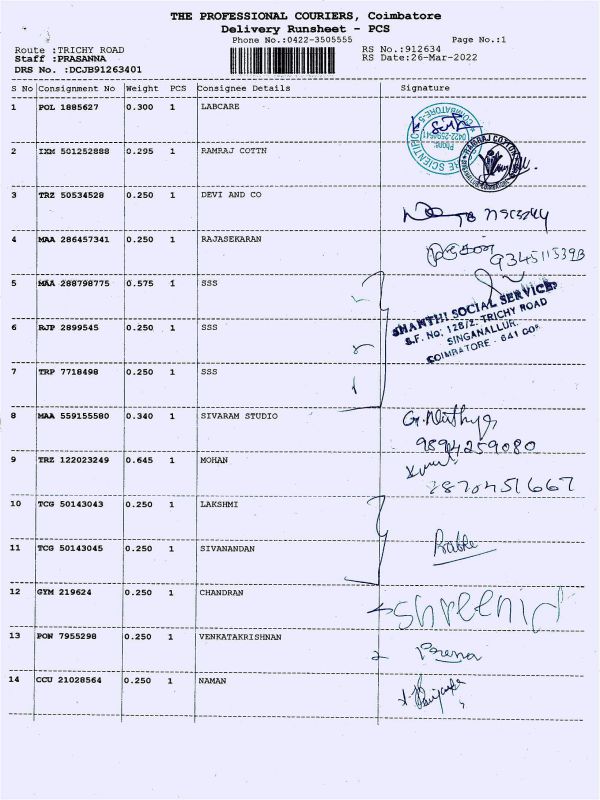 THE PROFESSIONAL COURIERS, Coimbatore
Delivery Runsheet - PCS
Phone No.:0422-3505555 Page No.:1
Route :TRICHY ROAD RS No.:912634
Staff :PRASANNA RS Date:26-Mar-2022
DRS No. :DCJB91263401
S No Consignment No Weight PCS Consignee Details Signature
1 POL 1885627 0.300 1 LABCARE
2 IXM 501252888 0.295 1 RAMRAJ COTTN
RAMRAJ COTTON
3 TRZ 50534528 0.250 1 DEVI AND CO
4 MAA 286457341 0.250 1 RAJASEKARAN
5 MAA 288798775 0.575 1 SSS
SHANTHI SOCIAL SERVICE
S.F. No: 128/2. TRICHY ROAD
SINGANALLUR,
COIMBATORE - 641 005
6 RJP 2899545 0.250 1 SSS
7 TRP 7718498 0.250 1 SSS
8 MAA 559155580 0.340 1 SIVARAM STUDIO
9894259080
9 TRZ 122023249 0.645 1 MOHAN
8870451667
10 TCG 50143043 0.250 1 LAKSHMI
11 TCG 50143045 0.250 1 SIVANANDAN
12 GYM 219624 0.250 1 CHANDRAN
13 PON 7955298 0.250 1 VENKATAKRISHNAN
14 CCU 21028564 0.250 1 NAMAN